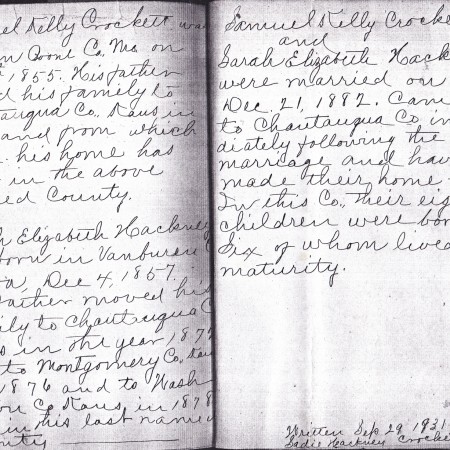 el Kelly Crockett was
n Boone Co, Mo on
1855. His father
d his family to
auqua Co, Kans in
and from which
his home has
in the above
ed County.
h Elizabeth Hackney
born in Vanburen
a, Dec 4, 1857.
father moved his
ily to Chautauqua C
s in the year, 187
to Montgomery Co, Kans
1876 and to Wash
on Co Kans, in 1878
in this last named
unty
Samuel Kelly Crocke
and
Sarah Elizabeth Hack
were married on
Dec. 21, 1882. Came
to Chautauqua Co im
diately following the
marriage and hav
made their home
In this Co, their eig
children were bor
Six of whom lived
maturity.
Written Sep 29 1931
Sadie Hackney Crocke